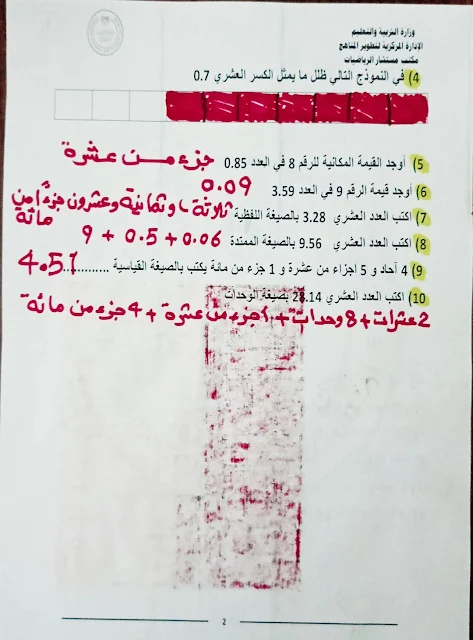 وزارة التربية والتعليم
الإدارة المركزية لتطوير المناهج
مكتب مستشار الرياضيات
4) في النموذج التالي ظلل ما يمثل الكسر العشري 0.7
5) أوجد القيمة المكانية للرقم 8 في العدد 0.85 جزء من عشرة
6) أوجد قيمة الرقم 9 في العدد 3.59 0.09
7) اكتب العدد العشري 3.28 بالصيغة اللفظية ثلاثة، وثمانية وعشرون جزءًا من مائة
8) اكتب العدد العشري 9.56 بالصيغة الممتدة 9 + 0.5 + 0.06
9) 4 آحاد و 5 اجزاء من عشرة و 1 جزء من مائة يكتب بالصيغة القياسية ............ 4.51
10) اكتب العدد العشري 28.14 بصيغة الوحدات
2 عشرات + 8 وحدات + 1 جزء من عشرة + 4 جزء من مائة
2